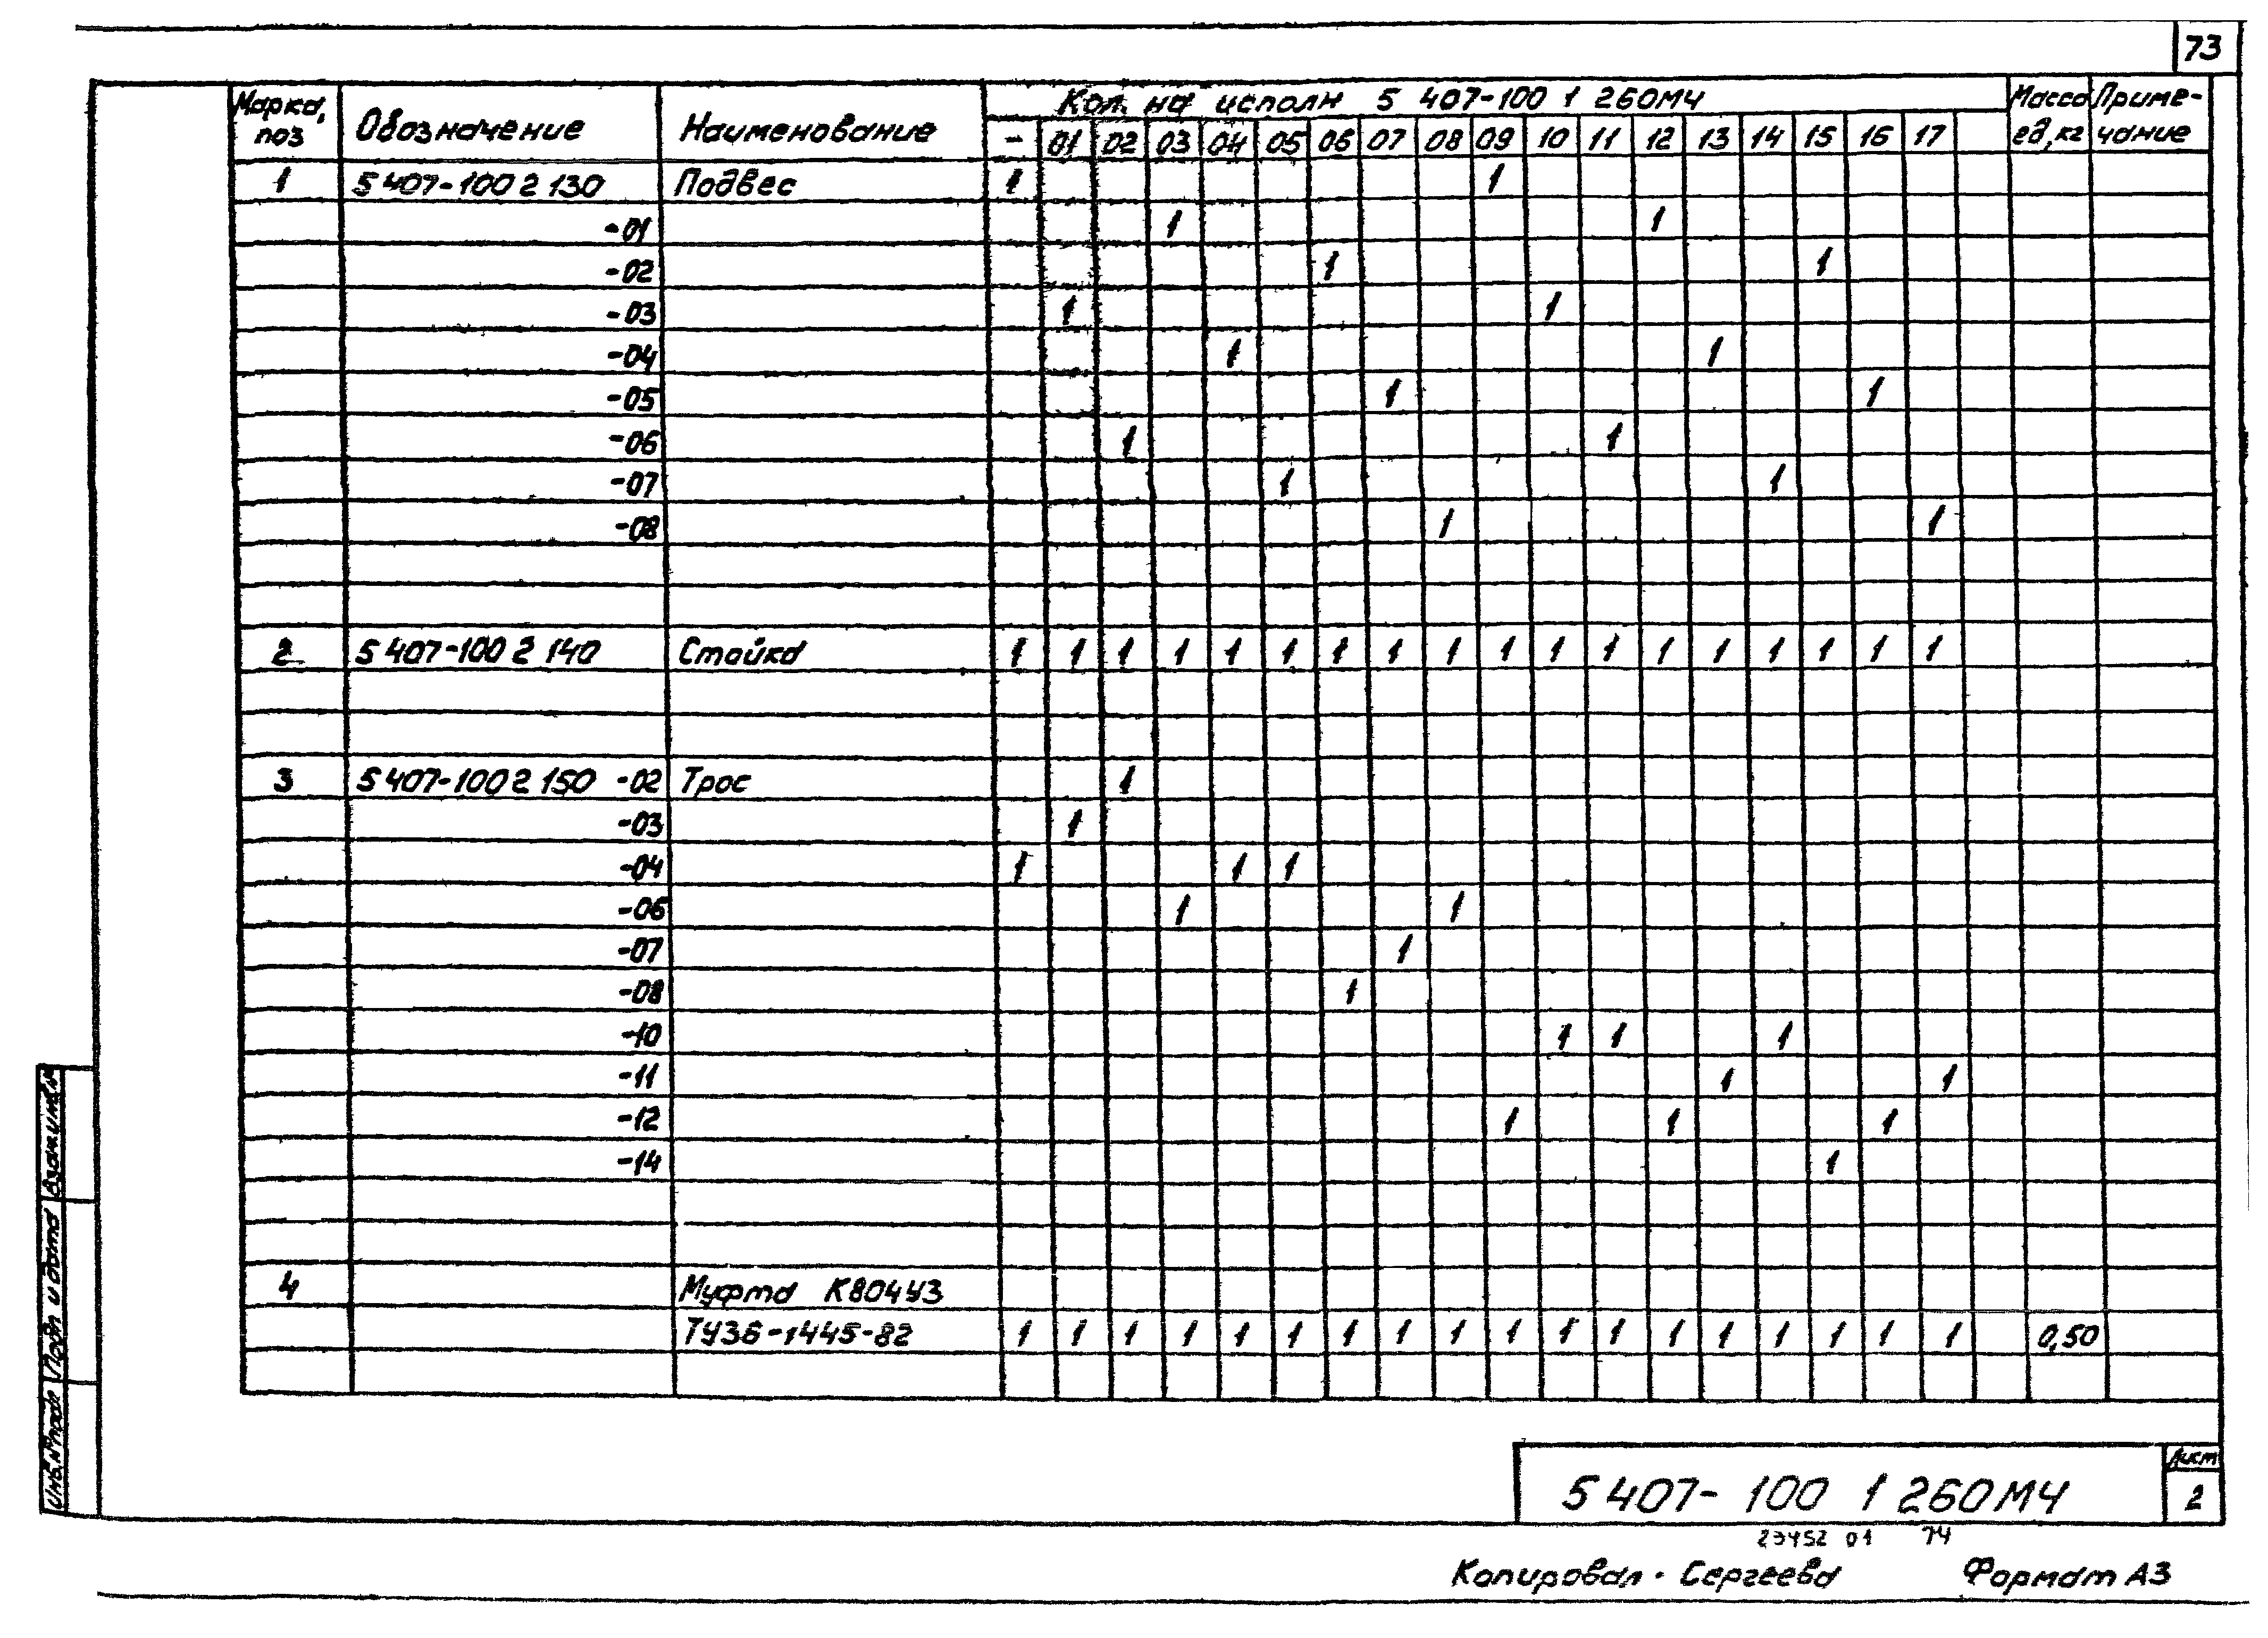 73
Марка, поз Обозначение Наименование Кол. на исполн 5 407-100 1 260МЧ Масса ед, кг Приме- чание
- 01 02 03 04 05 06 07 08 09 10 11 12 13 14 15 16 17
1 5 407-100 2 130 Подвес 1 1
-01 1 1
-02 1 1
-03 1 1
-04 1 1
-05 1 1
-06 1 1
-07 1 1
-08 1 1
2 5 407-100 2 140 Стойка 1 1 1 1 1 1 1 1 1 1 1 1 1 1 1 1 1 1
3 5 407-100 2 150 -02 Трос 1
-03 1
-04 1 1 1
-06 1 1
-07 1
-08 1
-10 1 1 1
-11 1 1
-12 1 1 1
-14 1
4 Муфта К804У3
ТУ36-1445-82 1 1 1 1 1 1 1 1 1 1 1 1 1 1 1 1 1 1 0,50
Инв.№подл Подп и дата Взам инв.№
5 407-100 1 260МЧ
Лист
2
23452 01 74
Копировал · Сергеева Формат А3